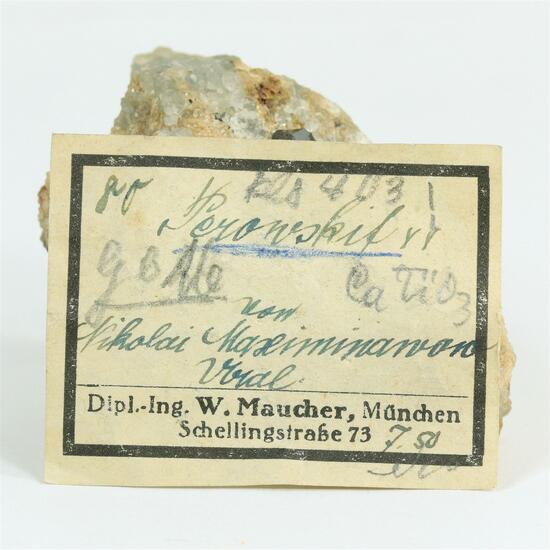 80 Klo 403!
Perowskit
CaTiO3
von
Nikolai Maximinawon
Ural.
Dipl.-Ing. W. Maucher, München
Schellingstraße 73 7.50